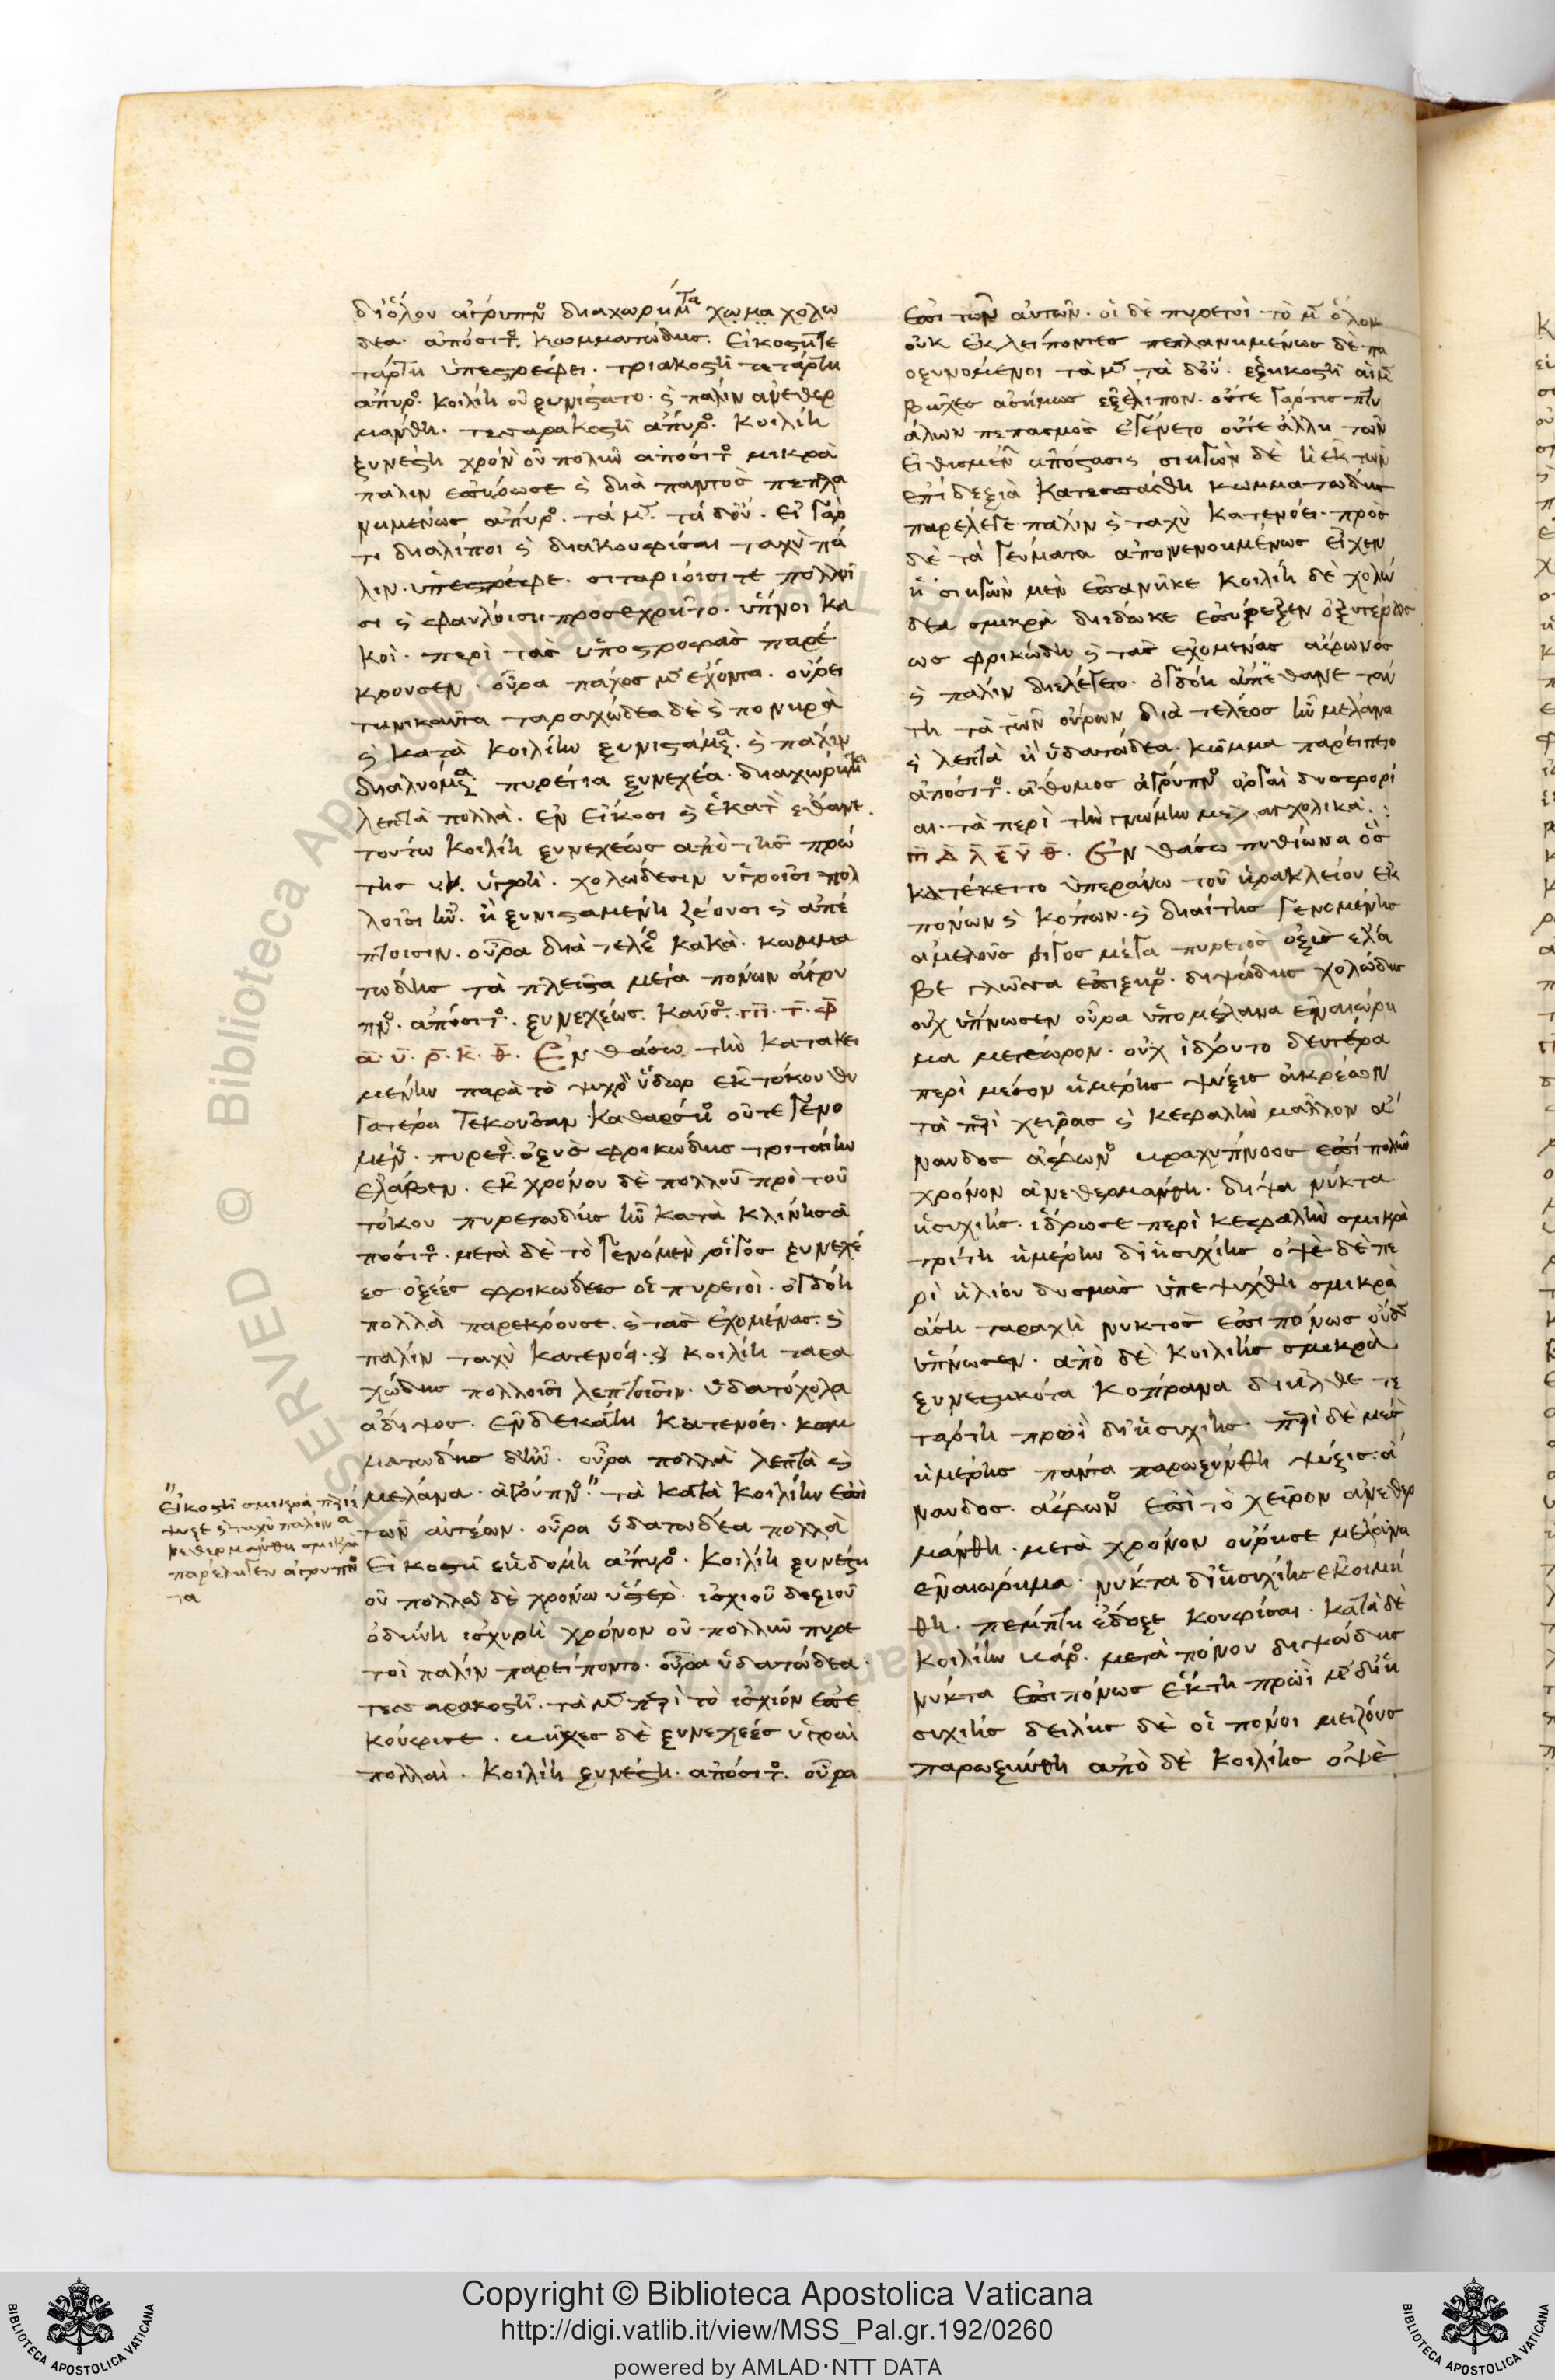 διόλου ἄγρυπνος διαχωρήματα χῶμα χολώ
δεα. ἀπόσιτος. κωματώδης. εἰκοστῆ τε
τάρτη ὑπέστρεφε. τριακοστῆ τετάρτη
ἄπυρος. κοιλίη οὐ ξυνίστατο. καὶ πάλιν ἀνεθερ
μάνθη. τεσσαρακοστῆ ἄπυρος. κοιλίη
ξυνέστη χρόνον οὐ πολὺν ἀπόσιτος μικρὰ
πάλιν ἐπύρωσε καὶ διὰ παντὸς πεπλα
νημένως ἄπυρος. τὰ μὲν. τὰ δ' οὔ. εἰ γάρ
τι διαλίποι καὶ διακουφίσαι ταχὺ πά
λιν ὑπέστρεφε. σιταρίοισί τε πολλοῖ
σι καὶ φαύλοισι προσεχρῆτο. ὕπνοι κα
κοὶ. περὶ τὰς ὑποστροφὰς παρέ
κρουσεν. οὖρα πάχος μὲν ἔχοντα. οὔρει
τηνικαῦτα ταραχώδεα δὲ καὶ πονηρὰ
καὶ κατὰ κοιλίην ξυνιστάμενα. καὶ πάλιν
διαλυόμενα πυρέτια ξυνεχέα. διαχωρήματα
λεπτὰ πολλά. ἐν εἴκοσι καὶ ἑκατὸν ἔθανε.
τούτω κοιλίη ξυνεχέως ἀπὸ τῆς πρώ
της ὑγρή. χολώδεσιν ὑγροῖσι πολ
λοῖσι ἦν. ἢ ξυνισταμένη ζέουσι καὶ ἀπέ
πτοισιν. οὖρα διὰ τέλεος κακά. κωμα
τώδης τὰ πλεῖστα μετὰ πόνων ἄγρυ
πνος. ἀπόσιτος. ξυνεχέως. καῦσος. π. γ. φ
α. υ. ρ. κ. θ. Ἐν θάσω τὴν κατακει
μένην παρὰ τὸ ψυχρὸν ὕδωρ ἐκ τόκου θυ
γατέρα τεκοῦσαν καθαρσίου οὔτε γενο
μένης. πυρετὸς ὀξὺς φρικώδης τριταίην
ἔλαβεν. ἐκ χρόνου δὲ πολλοῦ πρὸ τοῦ
τόκου πυρετώδης ἦν κατὰ κλίνης ἀ
πόσιτος. μετὰ δὲ τὸ γενόμενον ῥῖγος ξυνεχέ
ες ὀξέες φρικώδεες οἱ πυρετοί. ὀγδόη
πολλὰ παρέκρουσε. καὶ τὰς ἐχομένας. καὶ
πάλιν ταχὺ κατενόει. κοιλίη ταρα
χώδης πολλοῖσι λεπτοῖσιν. ὑδατόχολα
ἄδιψος. ἑνδεκάτη κατενόει. κω
ματώδης δ' ἦν. οὖρα πολλὰ λεπτὰ καὶ
μέλανα. ἄγρυπνος. τὰ κατὰ κοιλίην ἐπὶ
τῶν αὐτέων. οὖρα ὑδατώδεα πολλὰ
εἰκοστῆ ἑβδόμη ἄπυρος. κοιλίη ξυνέστη
οὐ πολλῶ δὲ χρόνω ὕστερον ἰσχίου δεξιοῦ
ὀδύνη ἰσχυρὴ χρόνον οὐ πολλὺν πυρε
τοὶ πάλιν παρείποντο. οὖρα ὑδατώδεα.
τεσσαρακοστῆ. τὰ μὲν περὶ τὸ ἰσχίον ἐπε
κούφισε. βῆχες δὲ ξυνεχέες ὑγραὶ
πολλαί. κοιλίη ξυνέστη. ἀπόσιτος. οὖρα
εἰκοστῆ σμικρὰ περιέ
ψυξε καὶ ταχὺ πάλιν ἀ
νεθερμάνθη σμικρὰ
παρέλεγεν ἄγρυπνος
τα
ἐπὶ τῶν αὐτῶν. οἱ δὲ πυρετοὶ τὸ μὲν ὅλον
οὐκ ἐκλείποντες πεπλανημένως δὲ πα
ροξυνόμενοι τὰ μὲν τὰ δ' οὔ. ἑξηκοστῆ αἱ μὲν
βῆχες ἀσήμως ἐξέλιπον. οὔτε γάρ τις πτυ
άλων πεπασμὸς ἐγένετο οὔτε ἄλλη τῶν
εἰθισμένων ἀπόστασις σιηγὼν δὲ ἡ ἐκ τῶν
ἐπὶ δεξιὰ κατεσπάσθη κωματώδης
παρέλεγε πάλιν καὶ ταχὺ κατενόει. πρὸς
δὲ τὰ γεύματα ἀπονενοημένως εἶχεν
ἡ σιηγὼν μὲν ἐπανῆκε κοιλίη δὲ χολώ
δεα σμικρὰ διέδωκε ἐπύρεξεν ὀξυτέρως
ως φρικώδη καὶ τὰς ἐχομένας ἄφωνος
καὶ πάλιν διελέγετο. ὀγδοη ἀπέθανε ταύ
τη τὰ τῶν οὔρων διὰ τέλεος ἦν μέλανα
καὶ λεπτὰ καὶ ὑδατώδεα. κῶμα παρείπετο
ἀπόσιτος. ἄθυμος ἄγρυπνος ὀργαὶ δυσφορί
αι. τὰ περὶ τὴν γνώμην μελαγχολικά. :
π Δ λ ε υ θ. Ἐν θάσω πυθίωνα ὃς
κατέκειτο ὑπεράνω τοῦ ἡρακλείου ἐκ
πόνων καὶ κόπων. καὶ διαίτης γενομένης
ἀμελοῦς ῥῖγος μέγα πυρετὸς ὀξὺς ἔλα
βε γλῶσσα ἐπίξηρος. διψώδης χολώδης
οὐχ ὕπνωσεν οὖρα ὑπομέλανα ἐναιώρη
μα μετέωρον. οὐχ ἵδρυτο δευτέρα
περὶ μέσον ἡμέρης ψύξις ἀκρέων
τὰ περὶ χεῖρας καὶ κεφαλὴν μᾶλλον ἄ
ναυδος ἄφωνος βραχύπνοος ἐπὶ πολὺν
χρόνον ἀνεθερμάνθη. δίψα νύκτα
ἡσυχίης. ἵδρωσε περὶ κεφαλὴν σμικρὰ
τρίτη ἡμέρην δι' ἡσυχίης ὀψὲ δὲ πε
ρὶ ἡλίου δυσμὰς ὑπεψύχθη σμικρὰ
ἄση ταραχὴ νυκτὸς ἐπιπόνως οὐδὲν
ὕπνωσεν. ἀπὸ δὲ κοιλίης σμικρὰ
ξυνεστηκότα κόπρανα διῆλθε τε
τάρτη πρωὶ δι' ἡσυχίης. περὶ δὲ μέσον
ἡμέρης πάντα παρωξύνθη ψύξις. ἄ
ναυδος. ἄφωνος ἐπὶ τὸ χεῖρον ἀνεθερ
μάνθη. μετὰ χρόνον οὔρησε μέλανα
ἐναιώρημα. νύκτα δι' ἡσυχίης ἐκοιμή
θη. πέμπτη ἔδοξε κουφίσαι. κατὰ δὲ
κοιλίην βάρος. μετὰ πόνου διψώδης
νύκτα ἐπιπόνως ἕκτη πρωὶ μὲν δι' ἡ
συχίης δείλης δὲ οἱ πόνοι μείζους
παρωξύνθη ἀπὸ δὲ κοιλίης ὀψὲ
Copyright © Biblioteca Apostolica Vaticana
http://digi.vatlib.it/view/MSS_Pal.gr.192/0260
powered by AMLAD·NTT DATA